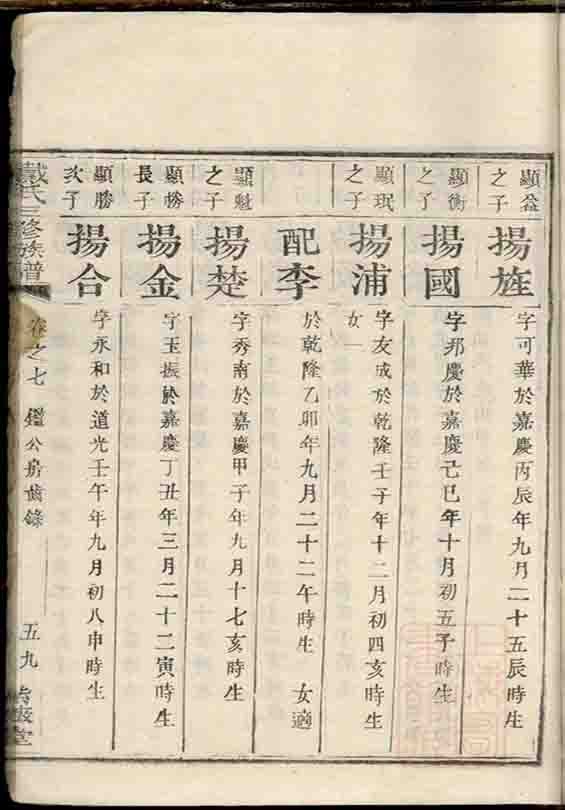 顯益之子
揚旌
字可華於嘉慶丙辰年九月二十五辰時生
顯衡之子
揚國
字邦慶於嘉慶己巳年十月初五子時生
顯珉之子
揚浦
字友成於乾隆壬子年十二月初四亥時生
女一
配李
於乾隆乙卯年九月二十二午時生 女適
顯魁之子
揚楚
字秀南於嘉慶甲子年九月十七亥時生
顯勝長子
揚金
字玉振於嘉慶丁丑年三月二十二寅時生
顯勝次子
揚合
字永和於道光壬午年九月初八申時生
戴氏三修族譜
卷之七 鑑公房齒錄
五九